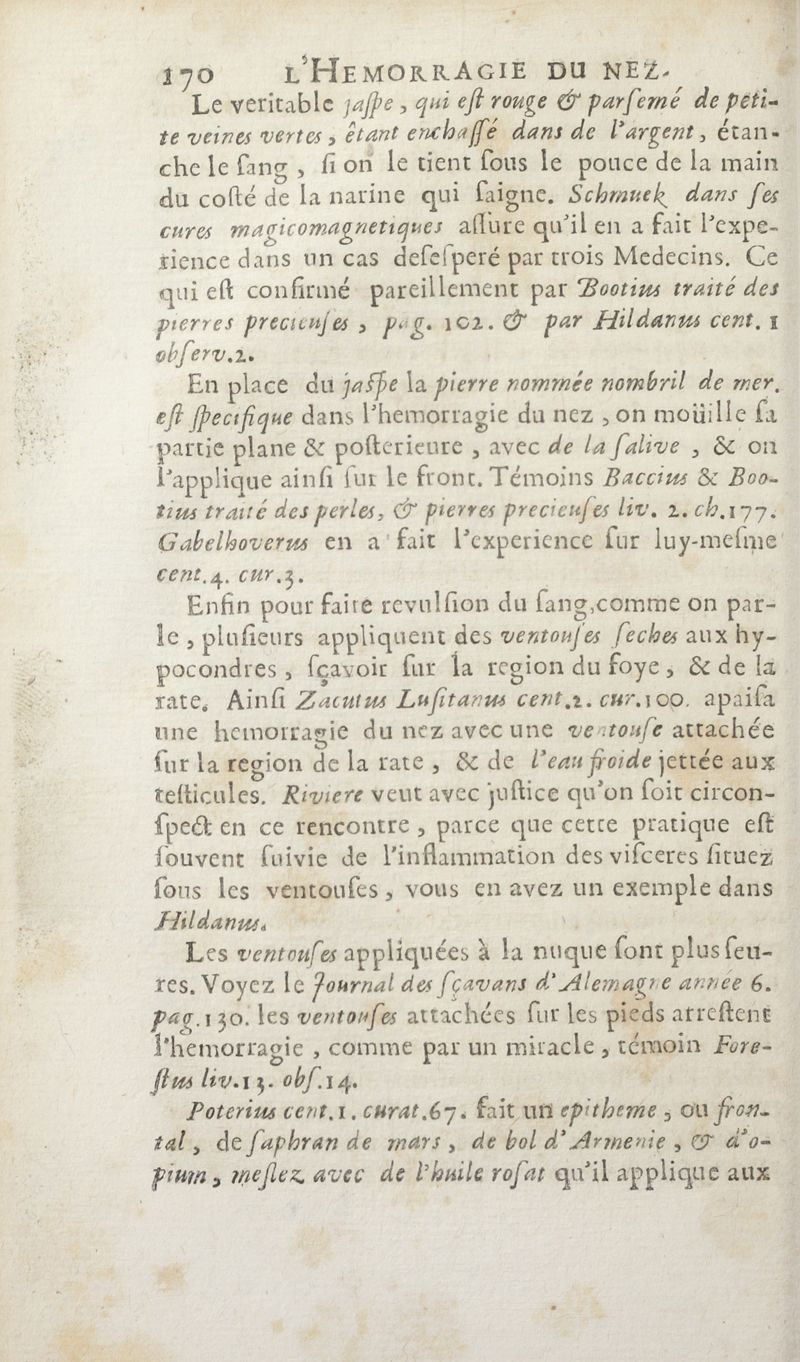 170 L'HEMORRAGIE DU NEZ.
Le veritable jaſpe, qui eſt rouge & parſemé de peti-
te veines vertes, êtant enchaſſé dans de l'argent, étan-
che le ſang, ſi on le tient ſous le pouce de la main
du coſté de la narine qui ſaigne. Schmuck dans ſes
cures magicomagnetiques aſſure qu'il en a fait l'expe-
rience dans un cas deſeſperé par trois Medecins. Ce
qui eſt confirmé pareillement par Bootius traité des
pierres precieuſes, pag. 102. & par Hildanus cent. 1
obſerv.2.
En place du jaſpe la pierre nommée nombril de mer.
eſt ſpecifique dans l'hemorragie du nez, on moüille ſa
partie plane & poſterieure, avec de la ſalive, & on
l'applique ainſi ſur le front. Témoins Baccius & Boo-
tius traité des perles, & pierres precieuſes liv. 2. ch.177.
Gabelhoverus en a fait l'experience ſur luy-meſme
cent.4. cur.3.
Enfin pour faire revulſion du ſang,comme on par-
le, pluſieurs appliquent des ventouſes ſeches aux hy-
pocondres, ſçavoir ſur la region du foye, & de la
rate. Ainſi Zacutus Luſitanus cent.2. cur.100. apaiſa
une hemorragie du nez avec une ventouſe attachée
ſur la region de la rate, & de l'eau froide jettée aux
teſticules. Riviere veut avec juſtice qu'on ſoit circon-
ſpect en ce rencontre, parce que cette pratique eſt
ſouvent ſuivie de l'inflammation des viſceres ſituez
ſous les ventouſes, vous en avez un exemple dans
Hildanus.
Les ventouſes appliquées à la nuque ſont plus ſeu-
res. Voyez le Journal des ſçavans d'Alemagne année 6.
pag.130. les ventouſes attachées ſur les pieds arreſtent
l'hemorragie, comme par un miracle, témoin Fore-
ſtus liv.13. obſ.14.
Poterius cent.1. curat.67. fait un epitheme, ou fron-
tal, de ſaphran de mars, de bol d'Armenie, & d'o-
pium, meſlez avec de l'huile roſat qu'il applique aux